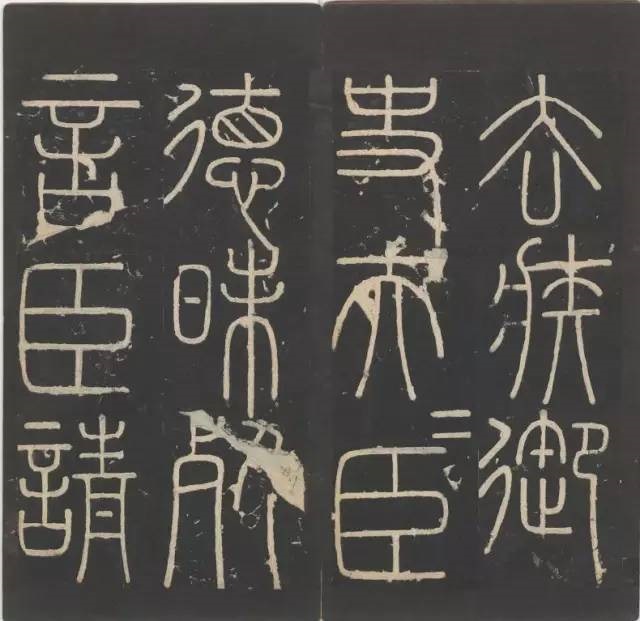 去疾御
史夫〓臣
德昧死
言臣請